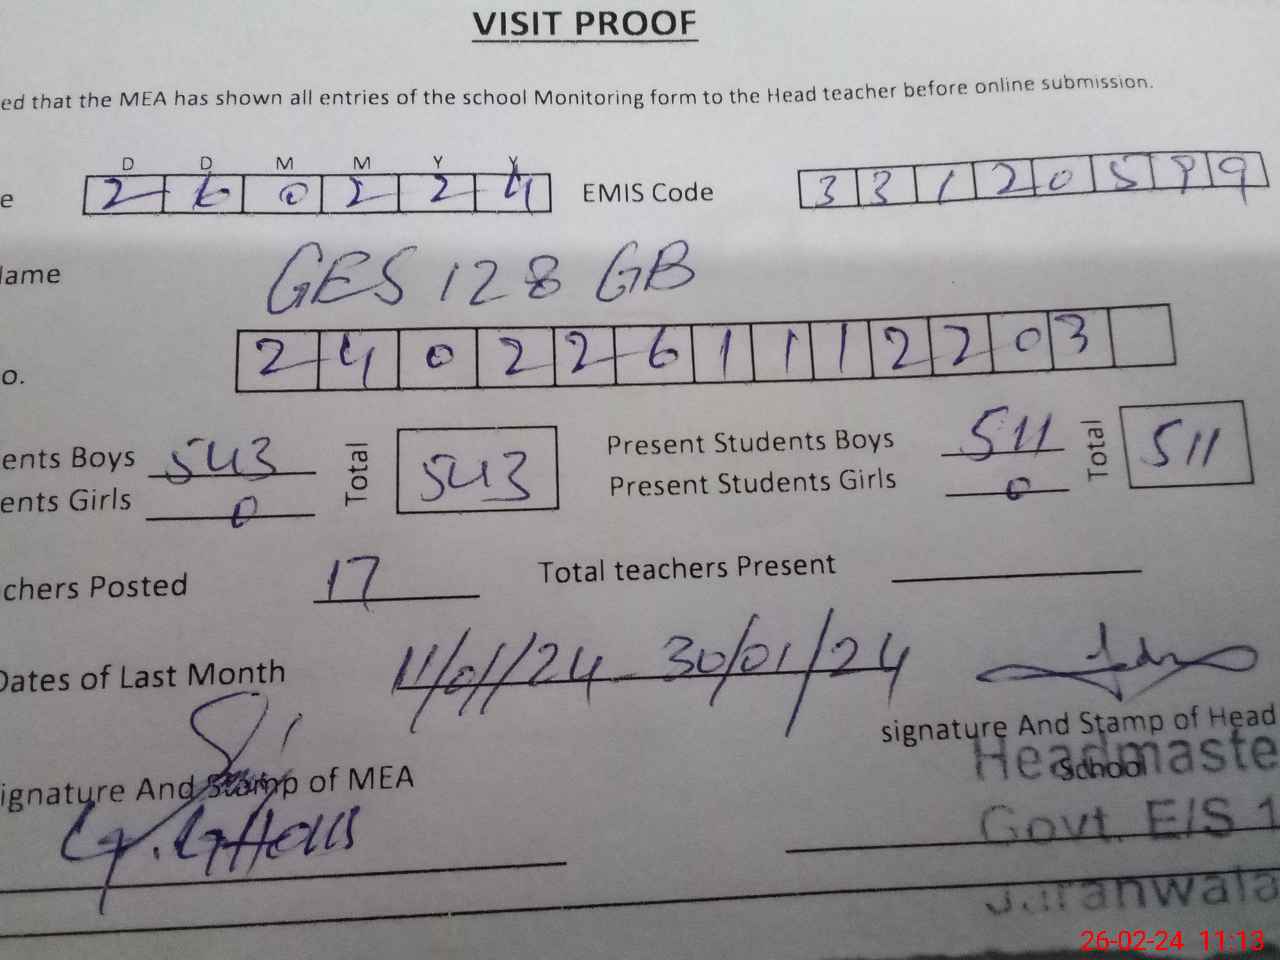 VISIT PROOF
ed that the MEA has shown all entries of the school Monitoring form to the Head teacher before online submission.
D D M M Y Y
e 2 6 0 2 2 4 EMIS Code 3 3 1 2 0 5 9 9
lame GES 128 GB
o. 2 4 0 2 2 6 1 1 1 2 2 0 3
ents Boys 543 Total 543 Present Students Boys 511 Total 511
ents Girls 0 Present Students Girls 0
chers Posted 17 Total teachers Present
Dates of Last Month 11/01/24 30/01/24
signature And Stamp of Head
School
Headmaste
ignature And Stamp of MEA
Govt. E/S 1
Jaranwala
26-02-24 11:13